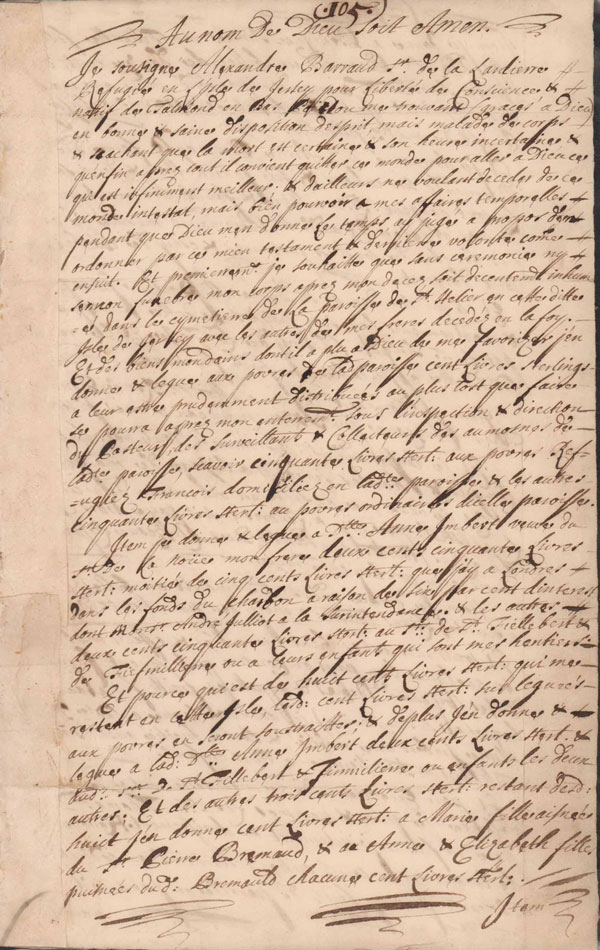 (·105·)
Au nom De Dieu Soit Amen.
Je sousigné Alexandre Barraud Sr. de la Lardierre
Refugié en L'Isle de Jersey pour liberté de Conscience &
natif de Talmond en Bas Poitou me trouvant graces à Dieu
en bonne & saine disposition d'esprit, mais malade de corps
& sachant que la mort est certaine & son heure incertaine &
qu'enfin aprez tout il convient quitter ce monde pour aller à Dieu ce
qui est infiniment meilleur: & d'ailleurs ne voulant deceder de ce
monde intestat, mais bien pouvoir à mes affaires temporelles
pendant que Dieu m'en donne le temps ay jugé à propos den
ordonner par ce mien testament & derniere volonté come
ensuit. Et premieremt. je souhaitte que sans ceremonie ny
sermon funebre mon corps aprez mon decez soit decentemt inhum
-é dans le cymetiere de La paroisse de St. Helier en cette ditte
Isle de Jersey avec les autres de mes freres decedez en la foy.
Et des biens mondains dont il a plu a Dieu de me favoriser j'en
donne & legue aux povres de lad. paroisse cent Livres Sterlings
a leur estre prudemment distribuées au plus tost que faire
se pourra aprez mon enterremt. sous l'inspection & direction
du Pasteur, des Surveillants & Collecteurs des aumosnes de
ladte paroisse, scavoir cinquante Livres Sterl: aux povres Ref-
-ugiez Francois domiciliez en ladte. paroisse & les autres
cinquante Livres Sterl: au povres ordinaires dicelle paroisse.
Item je donne & legue a Dlle. Anne Imbert veuve du
Sr. De la Noüe mon frere deux cents cinquante Livres
Sterl: moitié de cinq cents Livres Sterl: que j'ay a Londres
dans les fonds du charbon a raison de Six par cent d'interest
dont Monsr. André Julliot a la Surintendance. & les autres
deux cents cinquante Livres Sterl: au Sr. de St. Fillebert &
de Fiefmillierre ou a leurs enfants qui sont mes heritiers:
Et pource qui est de huict cents Livres Sterl: qui me
restent en cette Isle, lesd: cent Livres Sterl: sur leguées
aux povres en seront soustraittes: & de plus j'en donne &
legue a lad: Dlle. Anne Imbert deux cents Livres Sterl. &
aud: Srs. de St. Fillebert & Fimillierre ou enfants les deux
autres: Et des autres trois cents Livres Sterl: restant desd:
huict j'en donne cent Livres Sterl: a Marie fille aisnée
du Sr. Pierre Bremaud, & a Anne & Elizabeth filles
puisnées dud: Bremauld chacune cent Livres Sterl:.
Item